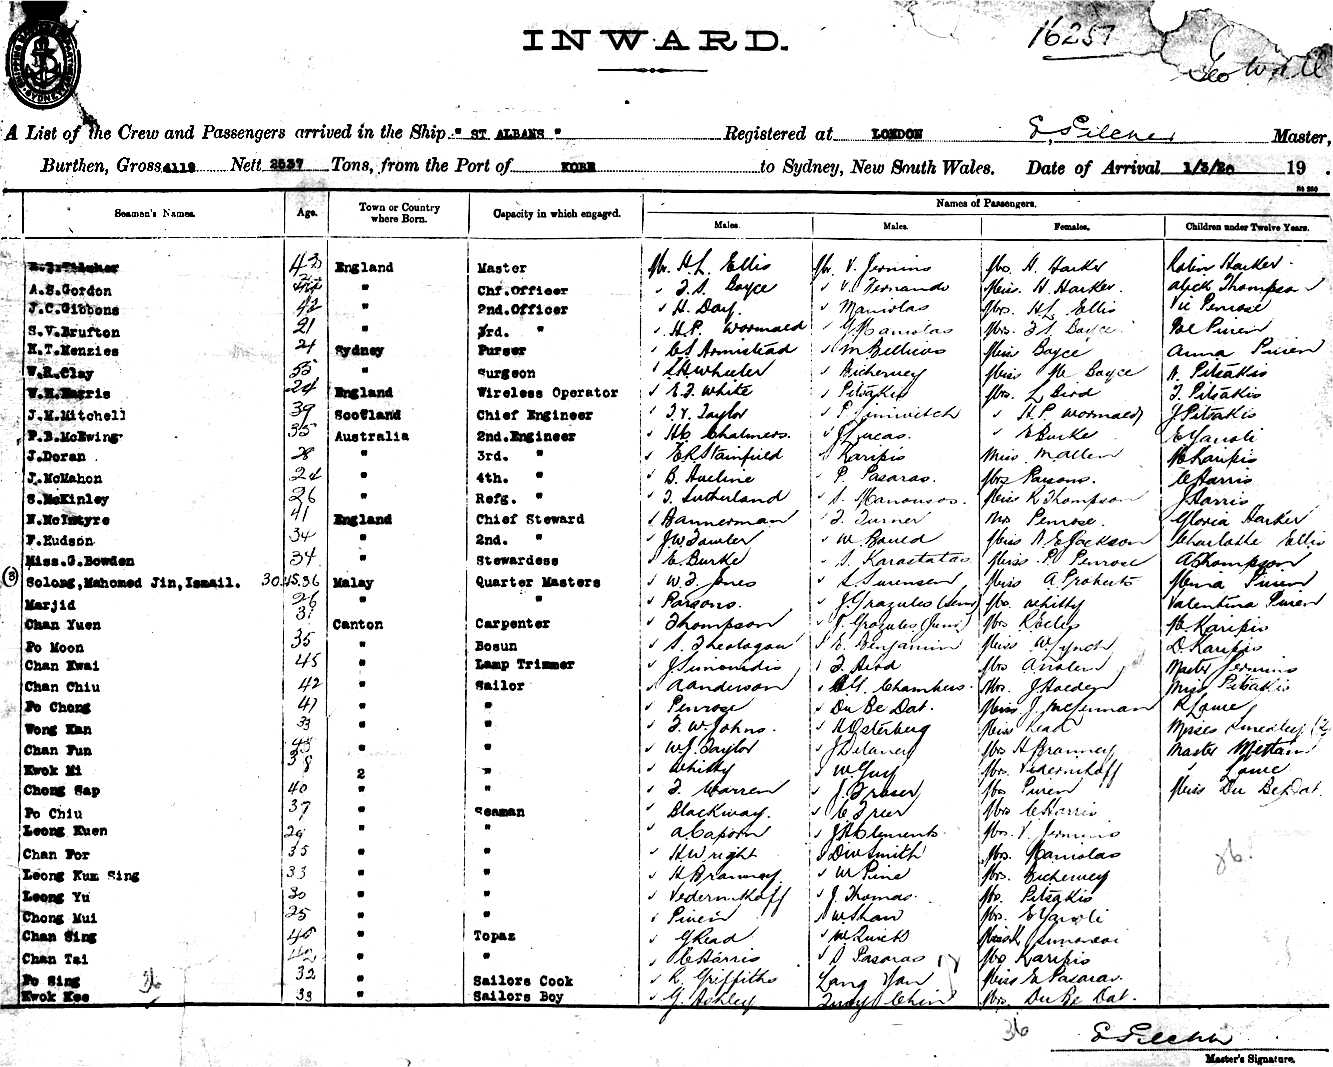 INWARD.
16257
A List of the Crew and Passengers arrived in the Ship " ST ALBANS " Registered at LONDON E. Pilcher Master,
Burthen, Gross 4119 Nett 2537 Tons, from the Port of KOBE to Sydney, New South Wales. Date of Arrival 1/3/20 19 .
Names of Passengers.
Seamen's Names. Age. Town or Country where Born. Capacity in which engaged. Males. Males. Females. Children under Twelve Years.
43 England Master Mr. H L Ellis Mr. V. Jernins Mrs H. Harker Robin Harker.
A.S.Gordon " Chf.Officer " F. S. Boyce " V. Fernando Miss H. Harker. Aleck Thompson
J.C.Gibbons 42 " 2nd.Officer " H. Day. " Maniolas Mrs. H L Ellis Vic Penrose
S.V.Brufton 21 " 3rd. " " H.P. Wormald " G. Maniolas Mrs. F S Boyce
K.T.Menzies 24 Sydney Purser " C S Armistead Miss Boyce Anna Piven
W.R.Clay 55 " Surgeon " S H Wheeler " Bicherney Miss M Boyce A. Pitsakis
24 England Wireless Operator " E. F. White " Pitsakis Mrs. L Bird F. Pitsakis
J.M.Mitchell 39 Scotland Chief Engineer " F. V. Taylor " H.P. Wormald J Pitsakis
P.B.McEwing 35 Australia 2nd.Engineer " H C Chalmers. " J Lucas. " E Burke E Yanoli
J.Doran 28 " 3rd. " " E R Stainfield " Karipis Miss Mallen M Karipis
J.McMahon 24 " 4th. " " B. Aveline " P. Pasaras. Mrs Parsons. C Harris
S.McKinley 26 " Refg. " " F. Sutherland " S. Manousos. Miss K Thompson J Harris
N.McIntyre 41 England Chief Steward " Bannerman " F. Turner Mrs Penrose. Gloria Harker
F.Hudson 34 " 2nd. " " J W Fawler " W Charlotte Ellis
Miss.G.Bowden 34 " Stewardess " E Burke " S. Karastatas Miss P. Penrose A Thompson
(3) Solong,Mahomed Jin,Ismail. 30.45.36 Malay Quarter Masters " W. F. Jones " S Sorensen Miss A Proberts Mena Piven
Marjid 26 " " " Parsons. Mrs Whitty Valentina Piven
Chan Yuen 31 Canton Carpenter " Thompson Mrs K Karipis
Po Moon 35 " Bosun " S. Theologan " E. Benjamin Miss W. Lynch D Karipis
Chan Kwai 45 " Lamp Trimmer " J Simonidis Mrs Master Jernins
Chan Chiu 42 " Sailor " A Anderson Chambers. Mrs. J Holden Miss Pitsakis
Po Chong 41 " " " Penrose " Du Be Dat. Miss J. McJerman
Wong Kan 33 " " " F. W. Johns. " H Osterberg Miss Read Misses Smedley
Chan Fun " " " W J. Taylor " J Delaney Mrs H Branney Master Mettam
Kwok Mi 38 2 " " Whitty " W Guy Mrs. Vedernikoff
Chong Sap 40 " " " F. Warren " J. Fraser Mrs Piven Miss Du Be Dat.
Po Chiu 37 " Seaman " Blackway. " C Freer Mrs C Harris
Leong Kuen 29 " " " A Caporn " J H Clements Mrs. V. Jernins
Chan For 35 " " " H Wright " D W Smith Mrs. Maniolas 26.
Leong Kum Sing 33 " " " H Branney " W Pine Mrs. Bicherney
Leong Yu 30 " " " Vedernikoff " J. Thomas. Mrs. Pitsakis
Chong Mui 25 " " " Piven " W Shaw Mrs. E Yanoli
Chan Sing 45 " Topaz " G Read " W Quick
Chan Tai 42 " " " C Harris " S Pasaras Mrs Karipis
Po Sing 32 " Sailors Cook " R. Griffiths Miss E Pasaras.
Kwok Kee 33 " Sailors Boy " G. Ashley Mrs. Du Be Dat.
36
E Pilcher
Master's Signature.